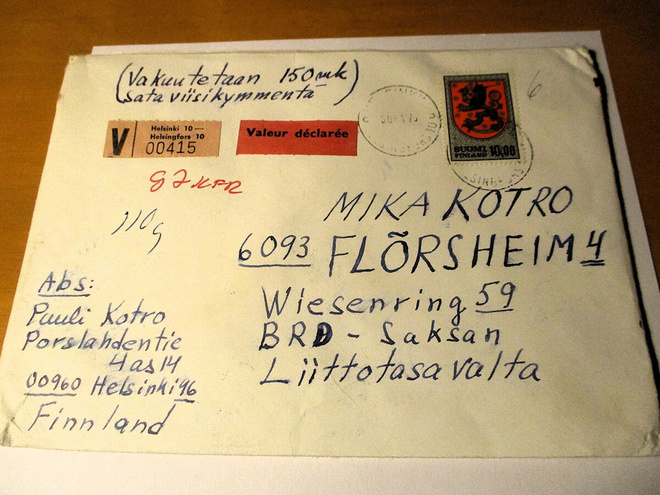 (Vakuutetaan 150mk)
sata viisikymmentä
V
Helsinki 10 —
Helsingfors 10
00415
Valeur déclarée
SUOMI 10,00
FINLAND
6
110g
MIKA KOTRO
6093 FLÕRSHEIM 4
Wiesenring 59
BRD - Saksan
Liittotasavalta
Abs:
Pauli Kotro
Porslahdentie
4as14
00960 Helsinki 96
Finnland